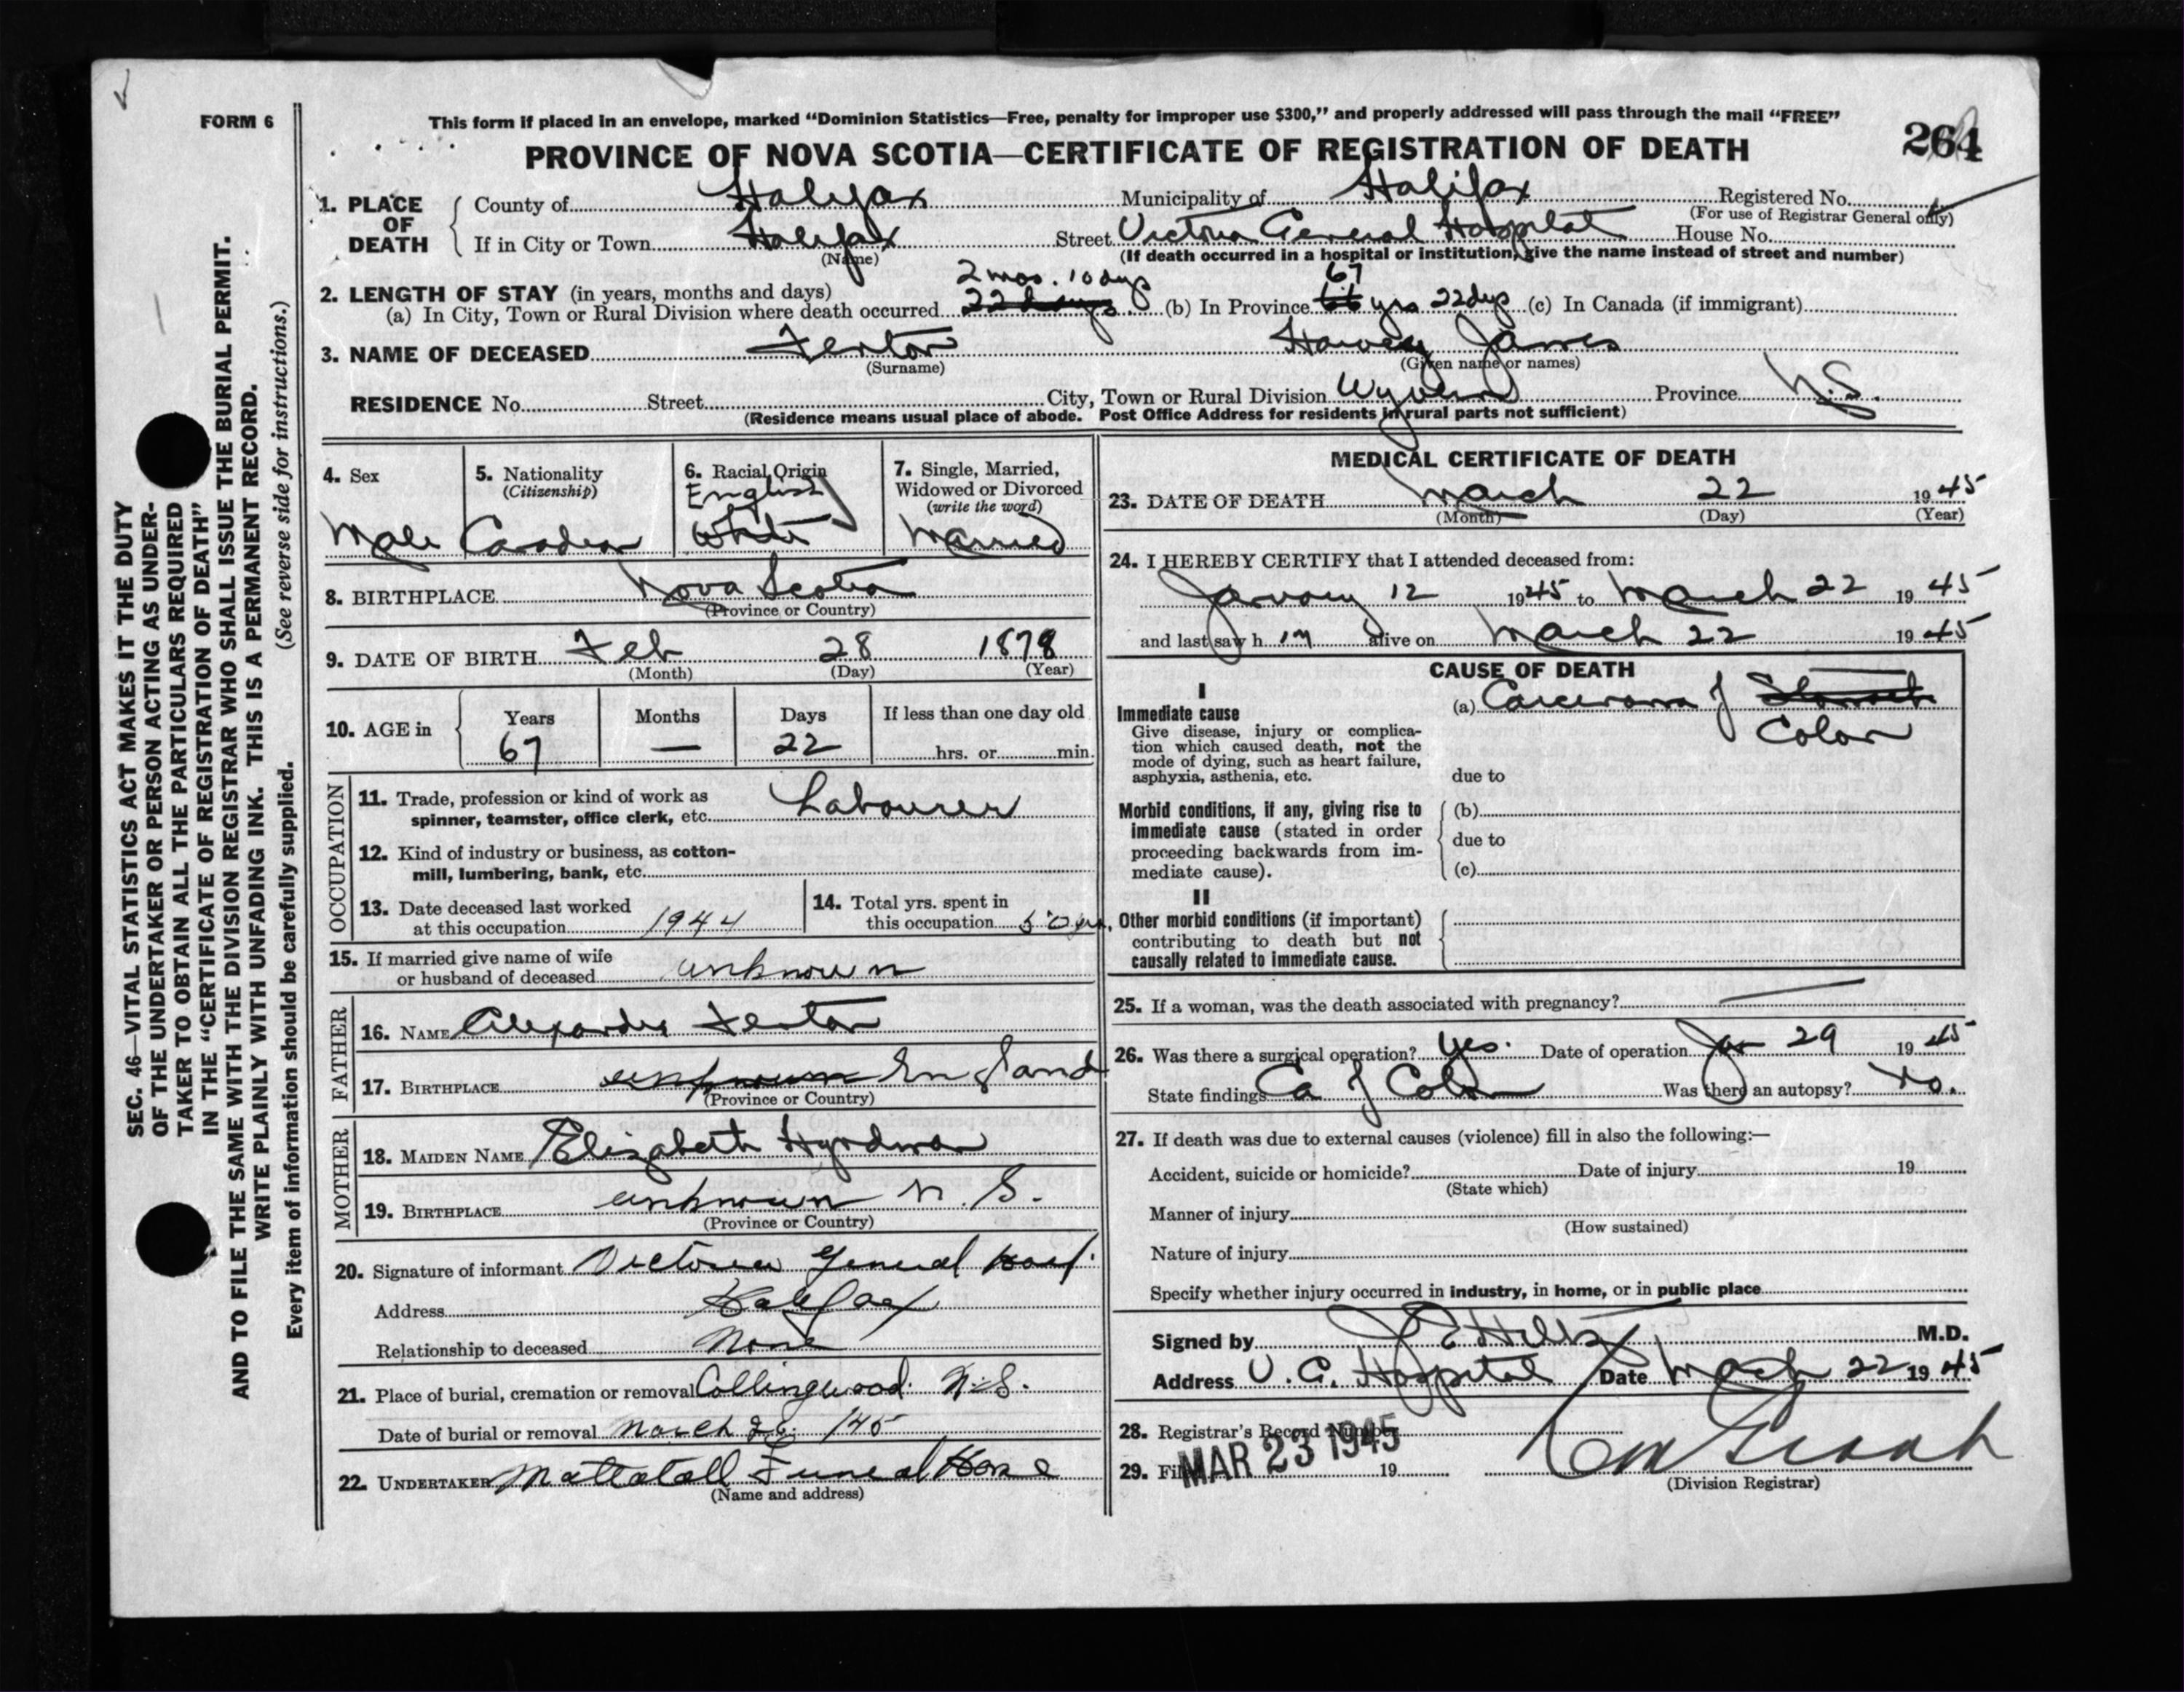 FORM 6
This form if placed in an envelope, marked “Dominion Statistics—Free, penalty for improper use $300,” and properly addressed will pass through the mail “FREE”
PROVINCE OF NOVA SCOTIA—CERTIFICATE OF REGISTRATION OF DEATH
264
1. PLACE OF DEATH
County of Halifax Municipality of Halifax Registered No.
(For use of Registrar General only)
If in City or Town Halifax Street Victoria General Hospital House No.
(Name) (If death occurred in a hospital or institution, give the name instead of street and number)
2 mos. 10 dys 67
2. LENGTH OF STAY (in years, months and days)
(a) In City, Town or Rural Division where death occurred 22 days (b) In Province 66 yrs 22 dys (c) In Canada (if immigrant)
3. NAME OF DECEASED Fenton Harvey James
(Surname) (Given name or names)
RESIDENCE No. Street City, Town or Rural Division Wyvern Province N.S.
(Residence means usual place of abode. Post Office Address for residents in rural parts not sufficient)
4. Sex 5. Nationality (Citizenship) 6. Racial Origin 7. Single, Married, Widowed or Divorced (write the word)
English
Male Canadian White Married
8. BIRTHPLACE Nova Scotia
(Province or Country)
9. DATE OF BIRTH Feb 28 1878
(Month) (Day) (Year)
10. AGE in Years Months Days If less than one day old
67 — 22 hrs. or min.
OCCUPATION
11. Trade, profession or kind of work as
spinner, teamster, office clerk, etc. Labourer
12. Kind of industry or business, as cotton-
mill, lumbering, bank, etc.
13. Date deceased last worked
at this occupation 1944
14. Total yrs. spent in
this occupation 50 yrs.
15. If married give name of wife
or husband of deceased unknown
FATHER
16. NAME Alexander Fenton
17. BIRTHPLACE unknown England
(Province or Country)
MOTHER
18. MAIDEN NAME Elizabeth
19. BIRTHPLACE unknown N. S.
(Province or Country)
20. Signature of informant Victoria General Hosp.
Address Halifax
Relationship to deceased None
21. Place of burial, cremation or removal Collingwood N.S.
Date of burial or removal March 26 /45
22. UNDERTAKER Mattatall Funeral Home
(Name and address)
MEDICAL CERTIFICATE OF DEATH
23. DATE OF DEATH March 22 1945
(Month) (Day) (Year)
24. I HEREBY CERTIFY that I attended deceased from:
January 12 1945 to March 22 1945
and last saw h im alive on March 22 1945
CAUSE OF DEATH
I
Immediate cause
Give disease, injury or complica-
tion which caused death, not the
mode of dying, such as heart failure,
asphyxia, asthenia, etc.
(a) Carcinoma of Stomach
Colon
due to
Morbid conditions, if any, giving rise to
immediate cause (stated in order
proceeding backwards from im-
mediate cause).
(b)
due to
(c)
II
Other morbid conditions (if important)
contributing to death but not
causally related to immediate cause.
25. If a woman, was the death associated with pregnancy? —
26. Was there a surgical operation? Yes. Date of operation Jan 29 1945
State findings Ca of Colon Was there an autopsy? No.
27. If death was due to external causes (violence) fill in also the following:—
Accident, suicide or homicide? Date of injury 19
(State which)
Manner of injury
(How sustained)
Nature of injury
Specify whether injury occurred in industry, in home, or in public place
Signed by J E Hiltz M.D.
Address V. G. Hospital Date March 22 1945
28. Registrar's Record Number
MAR 23 1945
29. Fil 19
(Division Registrar)
SEC. 46—VITAL STATISTICS ACT MAKES IT THE DUTY
OF THE UNDERTAKER OR PERSON ACTING AS UNDER-
TAKER TO OBTAIN ALL THE PARTICULARS REQUIRED
IN THE “CERTIFICATE OF REGISTRATION OF DEATH”
AND TO FILE THE SAME WITH THE DIVISION REGISTRAR WHO SHALL ISSUE THE BURIAL PERMIT.
WRITE PLAINLY WITH UNFADING INK. THIS IS A PERMANENT RECORD.
Every item of information should be carefully supplied. (See reverse side for instructions.)